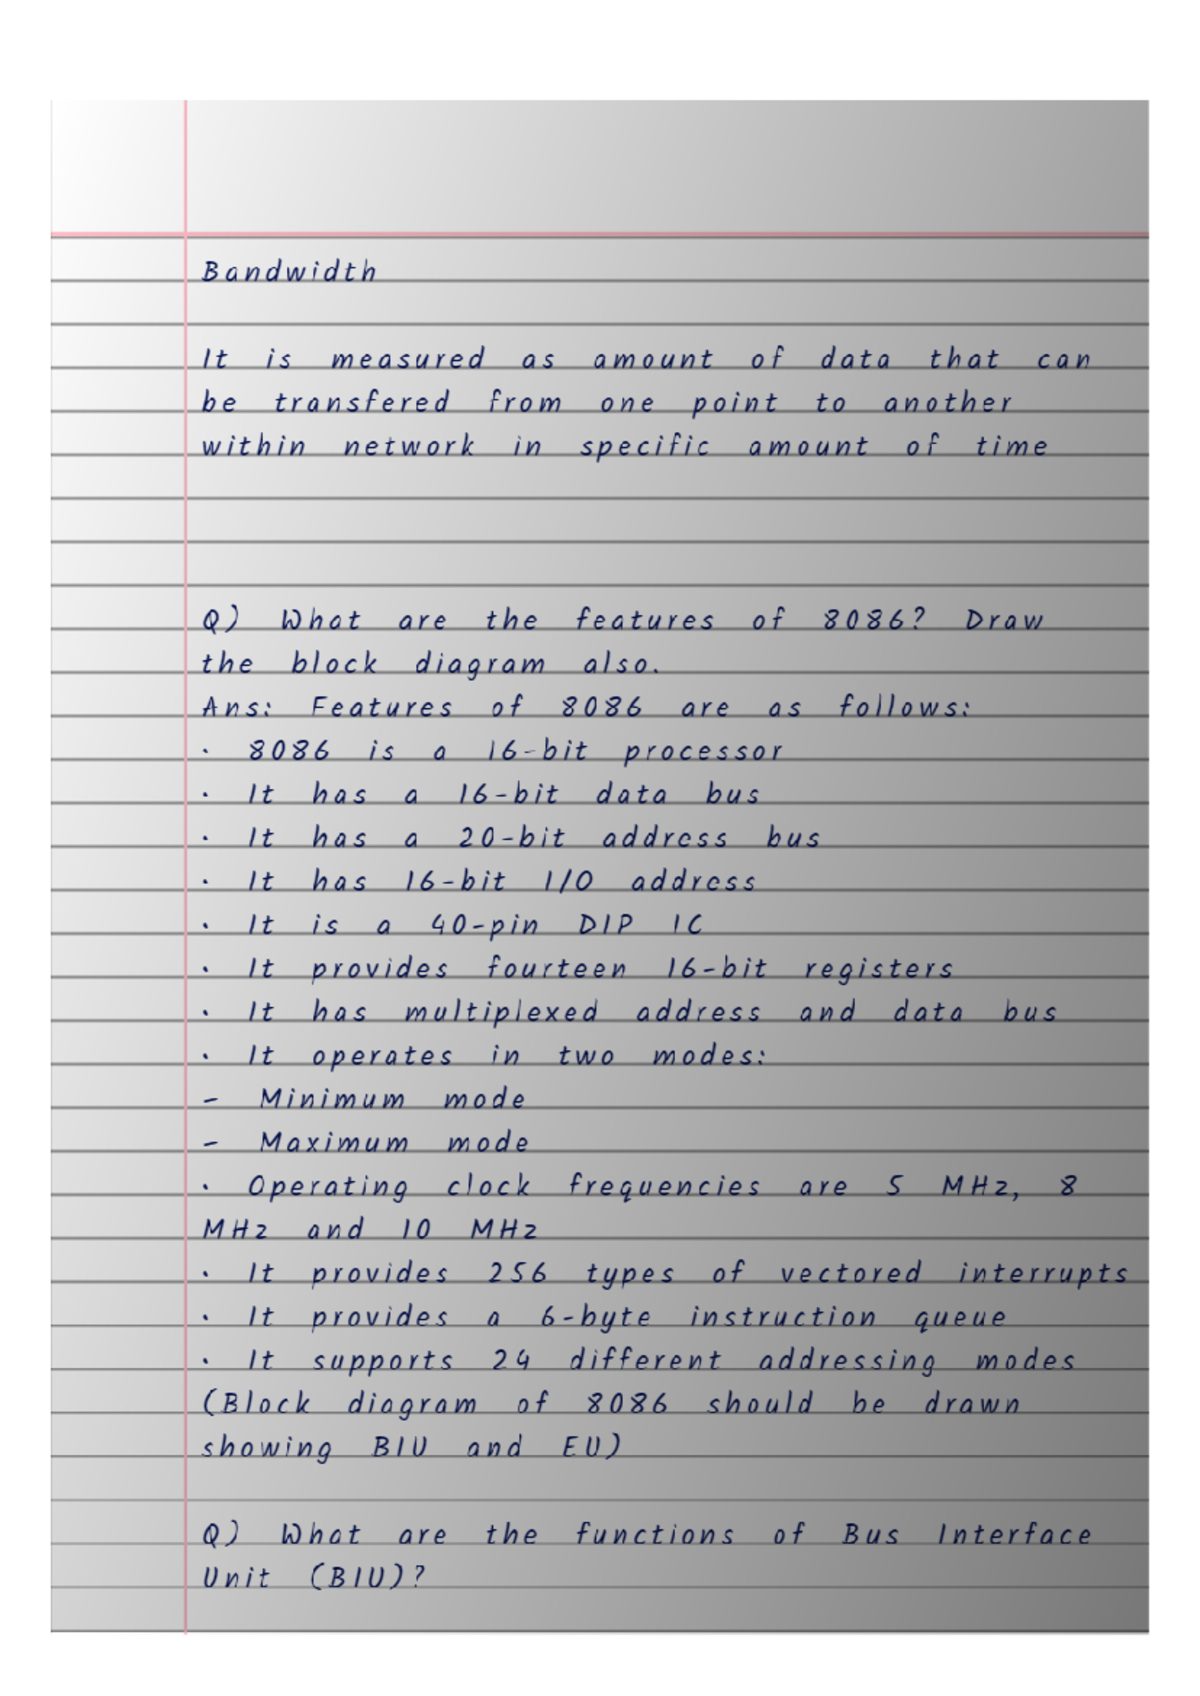 Bandwidth
It is measured as amount of data that can
be transfered from one point to another
within network in specific amount of time
Q) What are the features of 8086? Draw
the block diagram also.
Ans: Features of 8086 are as follows:
· 8086 is a 16-bit processor
· It has a 16-bit data bus
· It has a 20-bit address bus
· It has 16-bit I/O address
· It is a 40-pin DIP IC
· It provides fourteen 16-bit registers
· It has multiplexed address and data bus
· It operates in two modes:
- Minimum mode
- Maximum mode
· Operating clock frequencies are 5 MHz, 8
MHz and 10 MHz
· It provides 256 types of vectored interrupts
· It provides a 6-byte instruction queue
· It supports 24 different addressing modes
(Block diagram of 8086 should be drawn
showing BIU and EU)
Q) What are the functions of Bus Interface
Unit (BIU)?